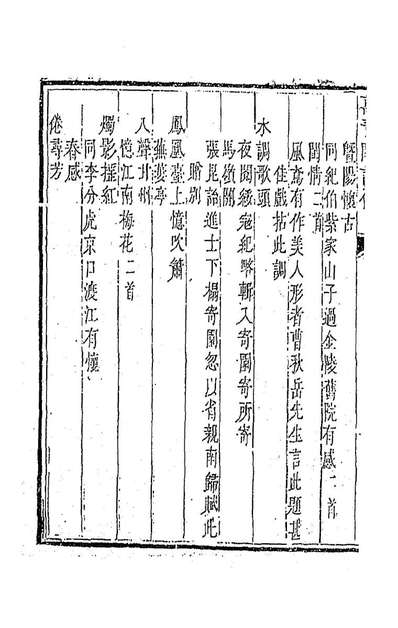 暨陽懷古
同紀伯紫家山子過金陵舊院有感二首
閨情二首
風鳶有作美人形者曹秋岳先生言此題甚
佳戲拈此調
水調歌頭
夜閱綏寇紀略斬入寄園寄所寄
馬嶺關
張毘論進士下榻寄園忽以省親南歸賦此
贈別
鳳凰臺上憶吹簫
蕪萎亭
八聲甘州
憶江南梅花二首
燭影搖紅
同李分虎京口渡江有懷
春感
倦尋芳